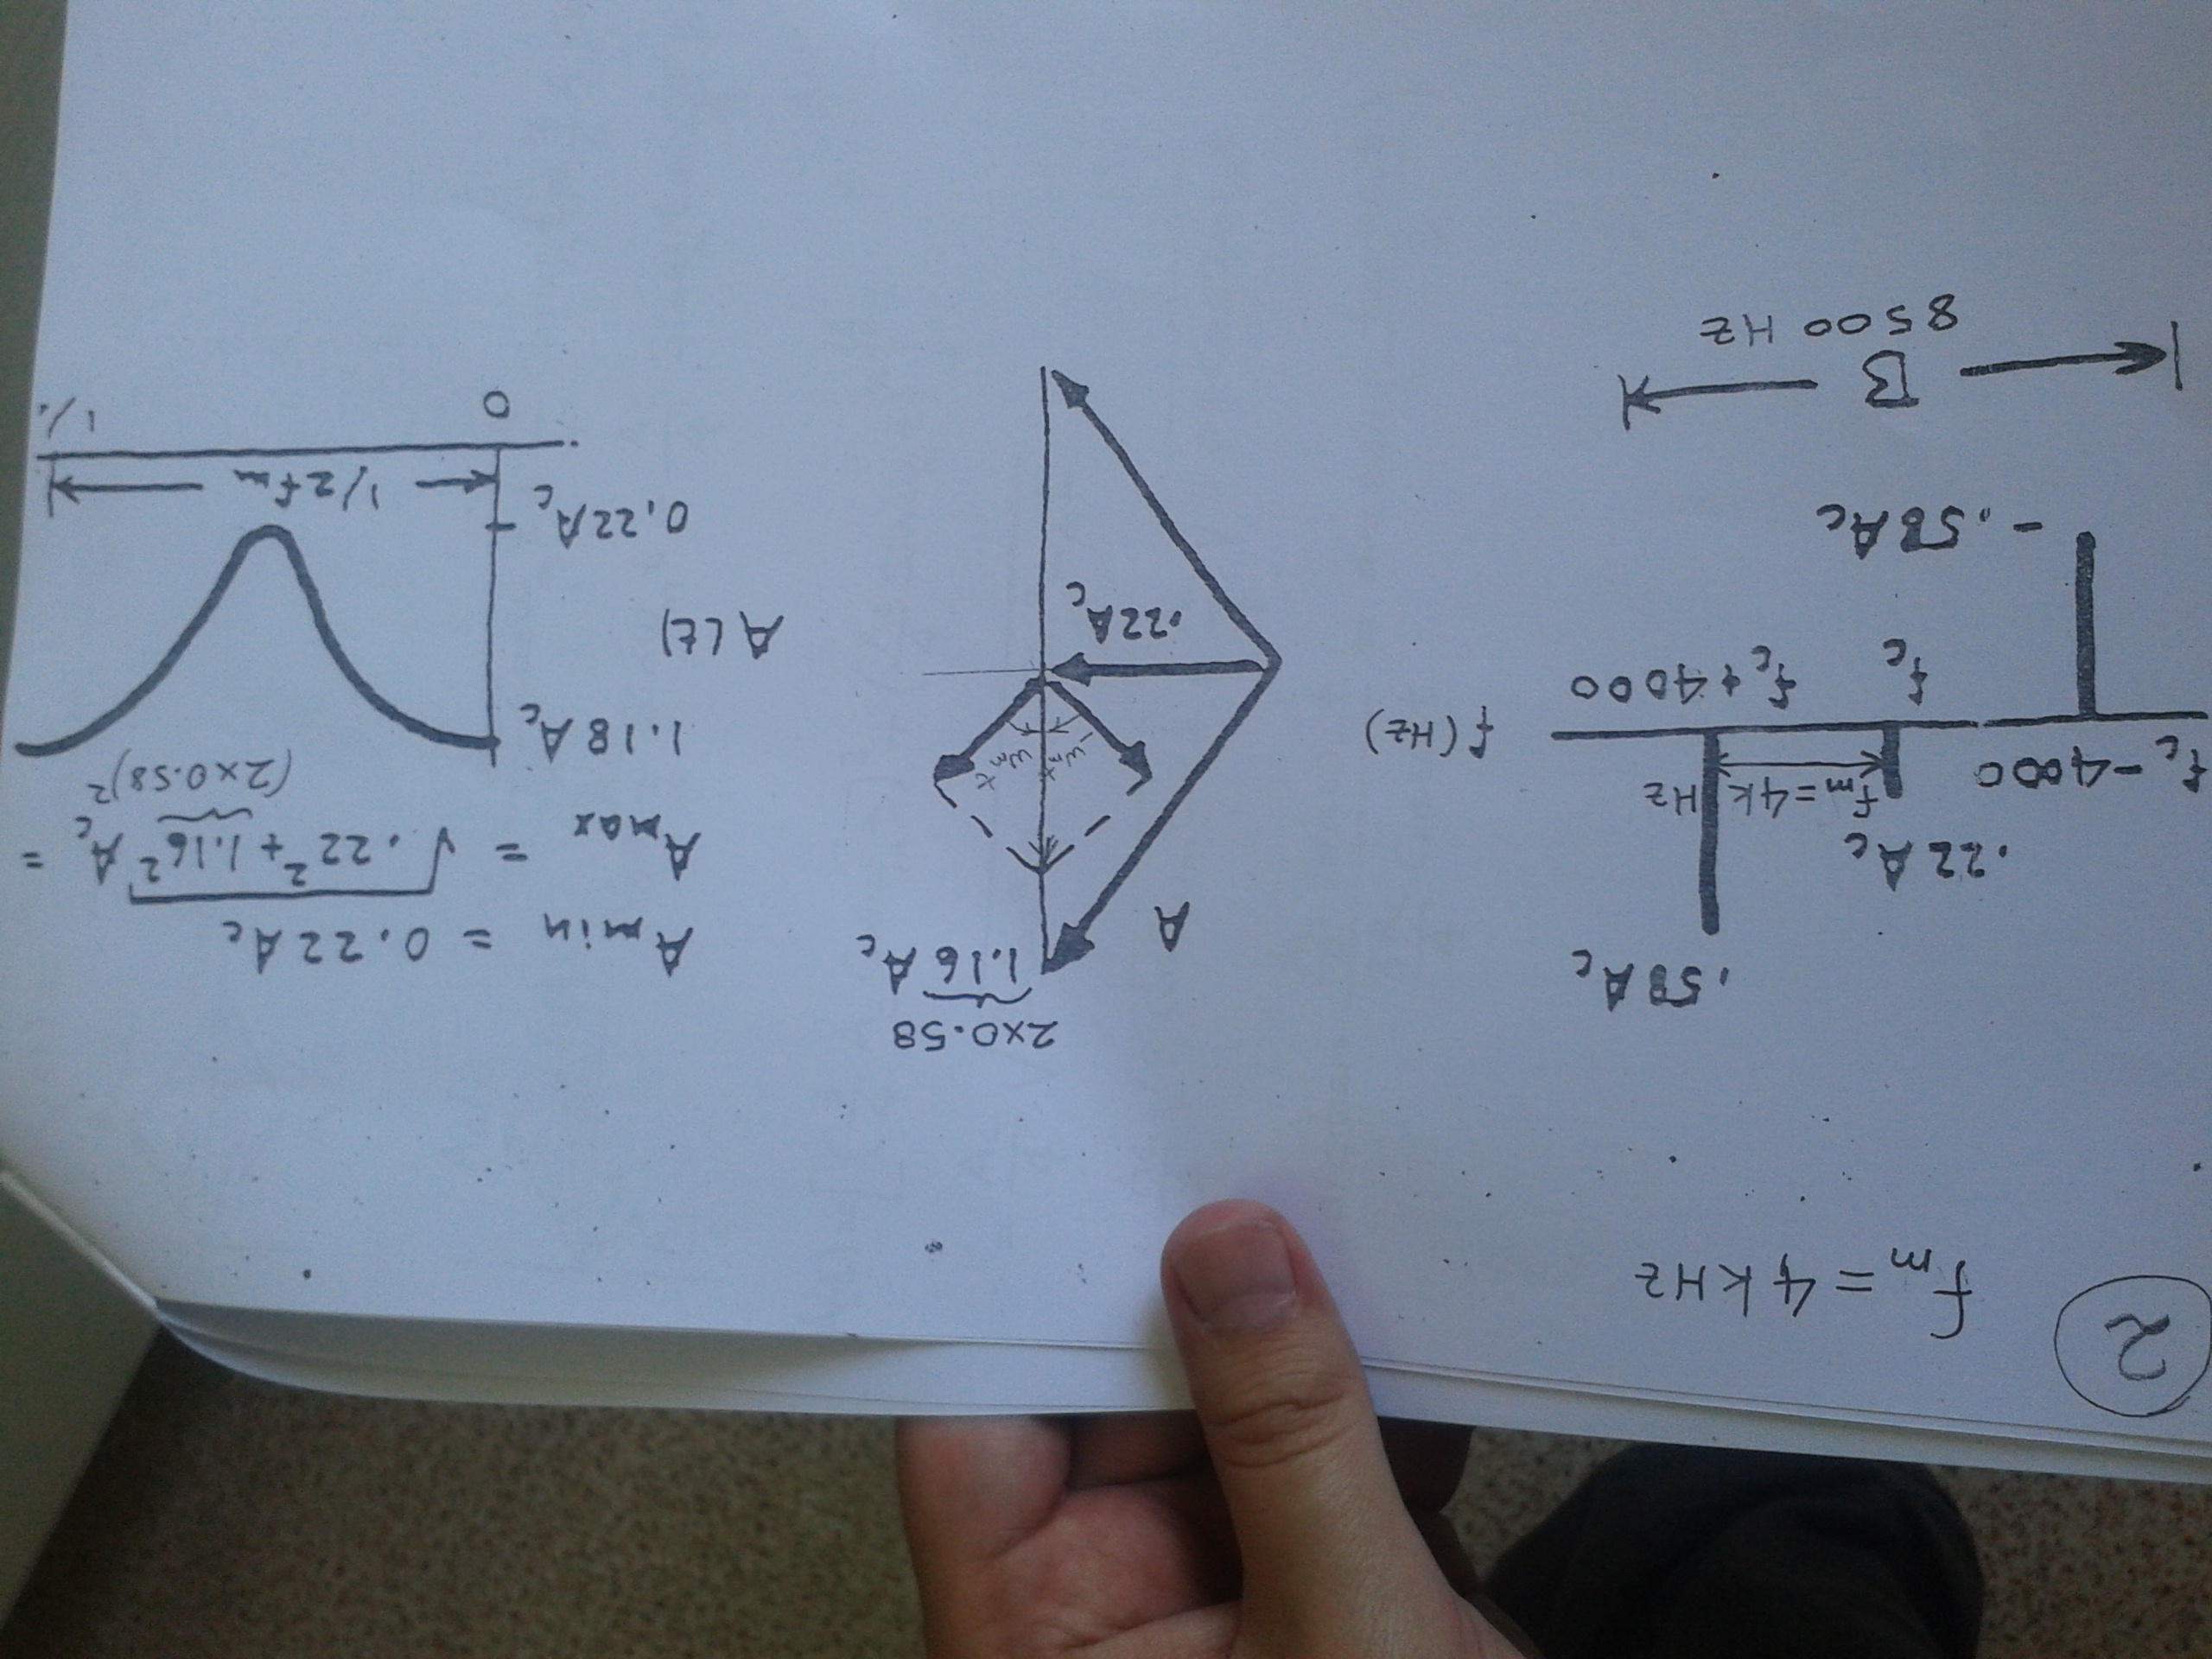 2
fm = 4 kHz
.58 Ac
.22 Ac
fm = 4k Hz
fc - 4000
fc
fc + 4000
f (Hz)
- .58 Ac
B
8500 Hz
2×0.58
1.16 Ac
A
ωmt
ωmt
.22 Ac
Amin = 0.22 Ac
Amax = √.22² + 1.16² Ac =
(2×0.58)²
1.18 Ac
A(t)
0.22 Ac
1/2fm
0